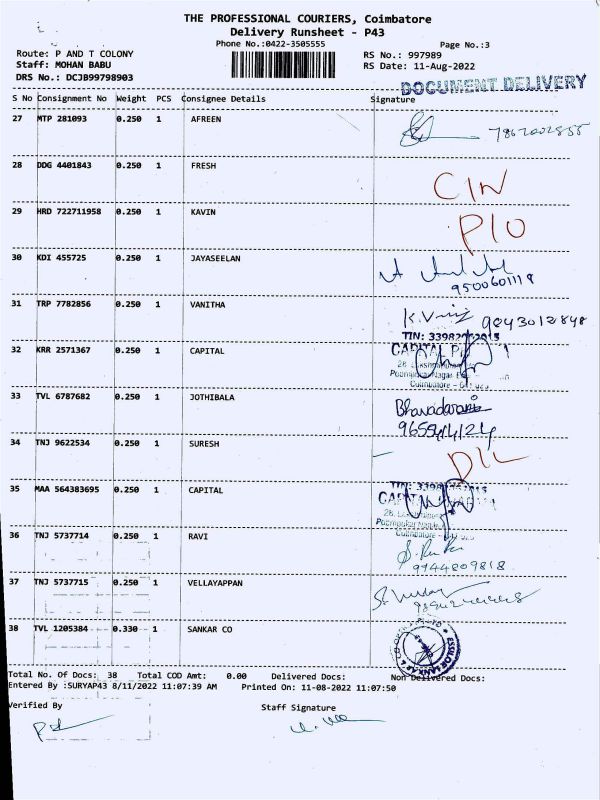 THE PROFESSIONAL COURIERS, Coimbatore
Delivery Runsheet - P43
Phone No.:0422-3505555 Page No.:3
Route: P AND T COLONY RS No.: 997989
Staff: MOHAN BABU RS Date: 11-Aug-2022
DRS No.: DCJB99798903
DOCUMENT DELIVERY
S No Consignment No Weight PCS Consignee Details Signature
27 MTP 281093 0.250 1 AFREEN
28 DDG 4401843 0.250 1 FRESH
CIN
29 HRD 722711958 0.250 1 KAVIN
P/O
30 KDI 455725 0.250 1 JAYASEELAN
9500601118
31 TRP 7782856 0.250 1 VANITHA
9043012848
32 KRR 2571367 0.250 1 CAPITAL
33 TVL 6787682 0.250 1 JOTHIBALA
34 TNJ 9622534 0.250 1 SURESH
D/L
35 MAA 564383695 0.250 1 CAPITAL
36 TNJ 5737714 0.250 1 RAVI
9944809818
37 TNJ 5737715 0.250 1 VELLAYAPPAN
38 TVL 1205384 0.330 1 SANKAR CO
Total No. Of Docs: 38 Total COD Amt: 0.00 Delivered Docs: Non Delivered Docs:
Entered By :SURYAP43 8/11/2022 11:07:39 AM Printed On: 11-08-2022 11:07:50
Verified By Staff Signature